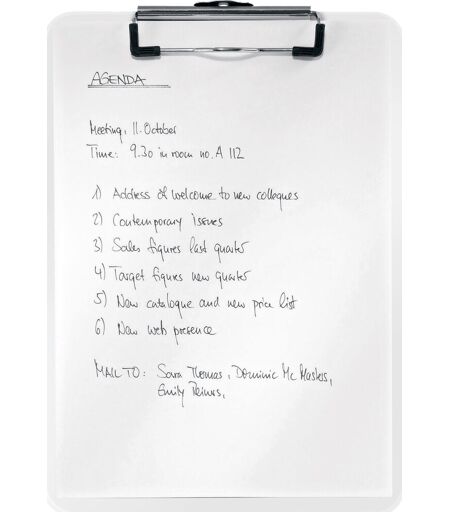 AGENDA
Meeting, 11. October
Time: 9.30 in room no. A 112
1) Address of welcome to new collogues
2) Contemporary issues
3) Sales figures last quarter
4) Target figures new quarter
5) New catalogue and new price list
6) New web presence
MAIL TO: Sara Thomas, Dominic Mc Masters,
Emily